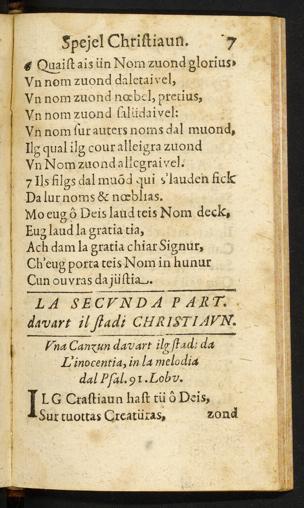 Spejel Christiaun. 7
6 Quaist ais ün Nom zuond glorius,
Vn nom zuond daletaivel,
Vn nom zuond nœbel, pretius,
Vn nom zuond salüdaivel:
Vn nom sur auters noms dal muond,
Ilg qual ilg cour alleigra zuond
Vn Nom zuond allegraivel.
7 Ils filgs dal muōd qui s'lauden fick
Da lur noms & nœblias.
Mo eug ô Deis laud teis Nom deck,
Eug laud la gratia tia,
Ach dam la gratia chiar Signur,
Ch'eug porta teis Nom in hunur
Cun ouvras da jüstia.
LA SECVNDA PART.
davart il stadi CHRISTIAVN.
Vna Canzun davart ilg stadi da
L'inocentia, in la melodia
dal Psal. 91. Lobv.
ILG Crastiaun hast tü ô Deis,
Sur tuottas Creatüras, zond